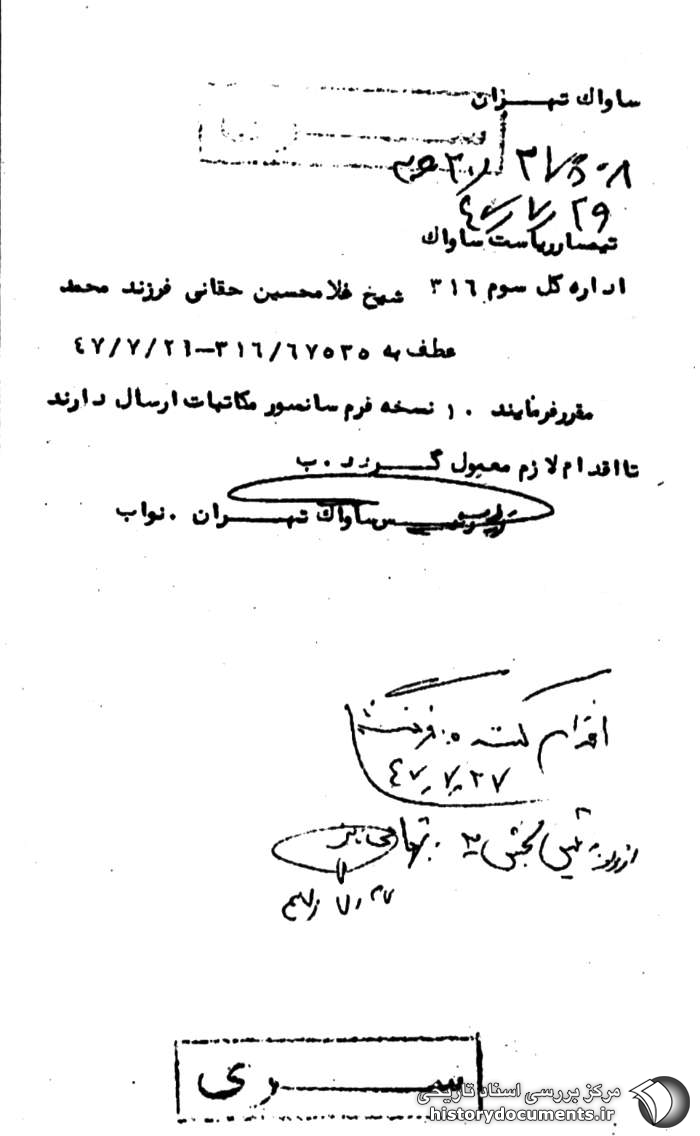 ساواك تهـــران
۳۱۶۰۸
۲۹ر۷ر۴۷
تیمسار ریاست ساواك
اداره کل سوم ۳۱٦ شیخ غلامحسین حقانی فرزند محمد
عطف به ٦۷٥۳٥/۳۱٦-٤۷/۷/۲٦
مقرر فرمایند ۱۰ نسخه فرم سانسور مکاتبات ارسال دارند
تا اقدام لازم معمول گــردد .ب
رئیــس ساواك تهــران .نواب
اقدام گشته
٤۷ر۷ر۲۷
بخش
۲۷ر۷ر۴۷
ســـری
مرکز بررسی اسناد تاریخی
historydocuments.ir